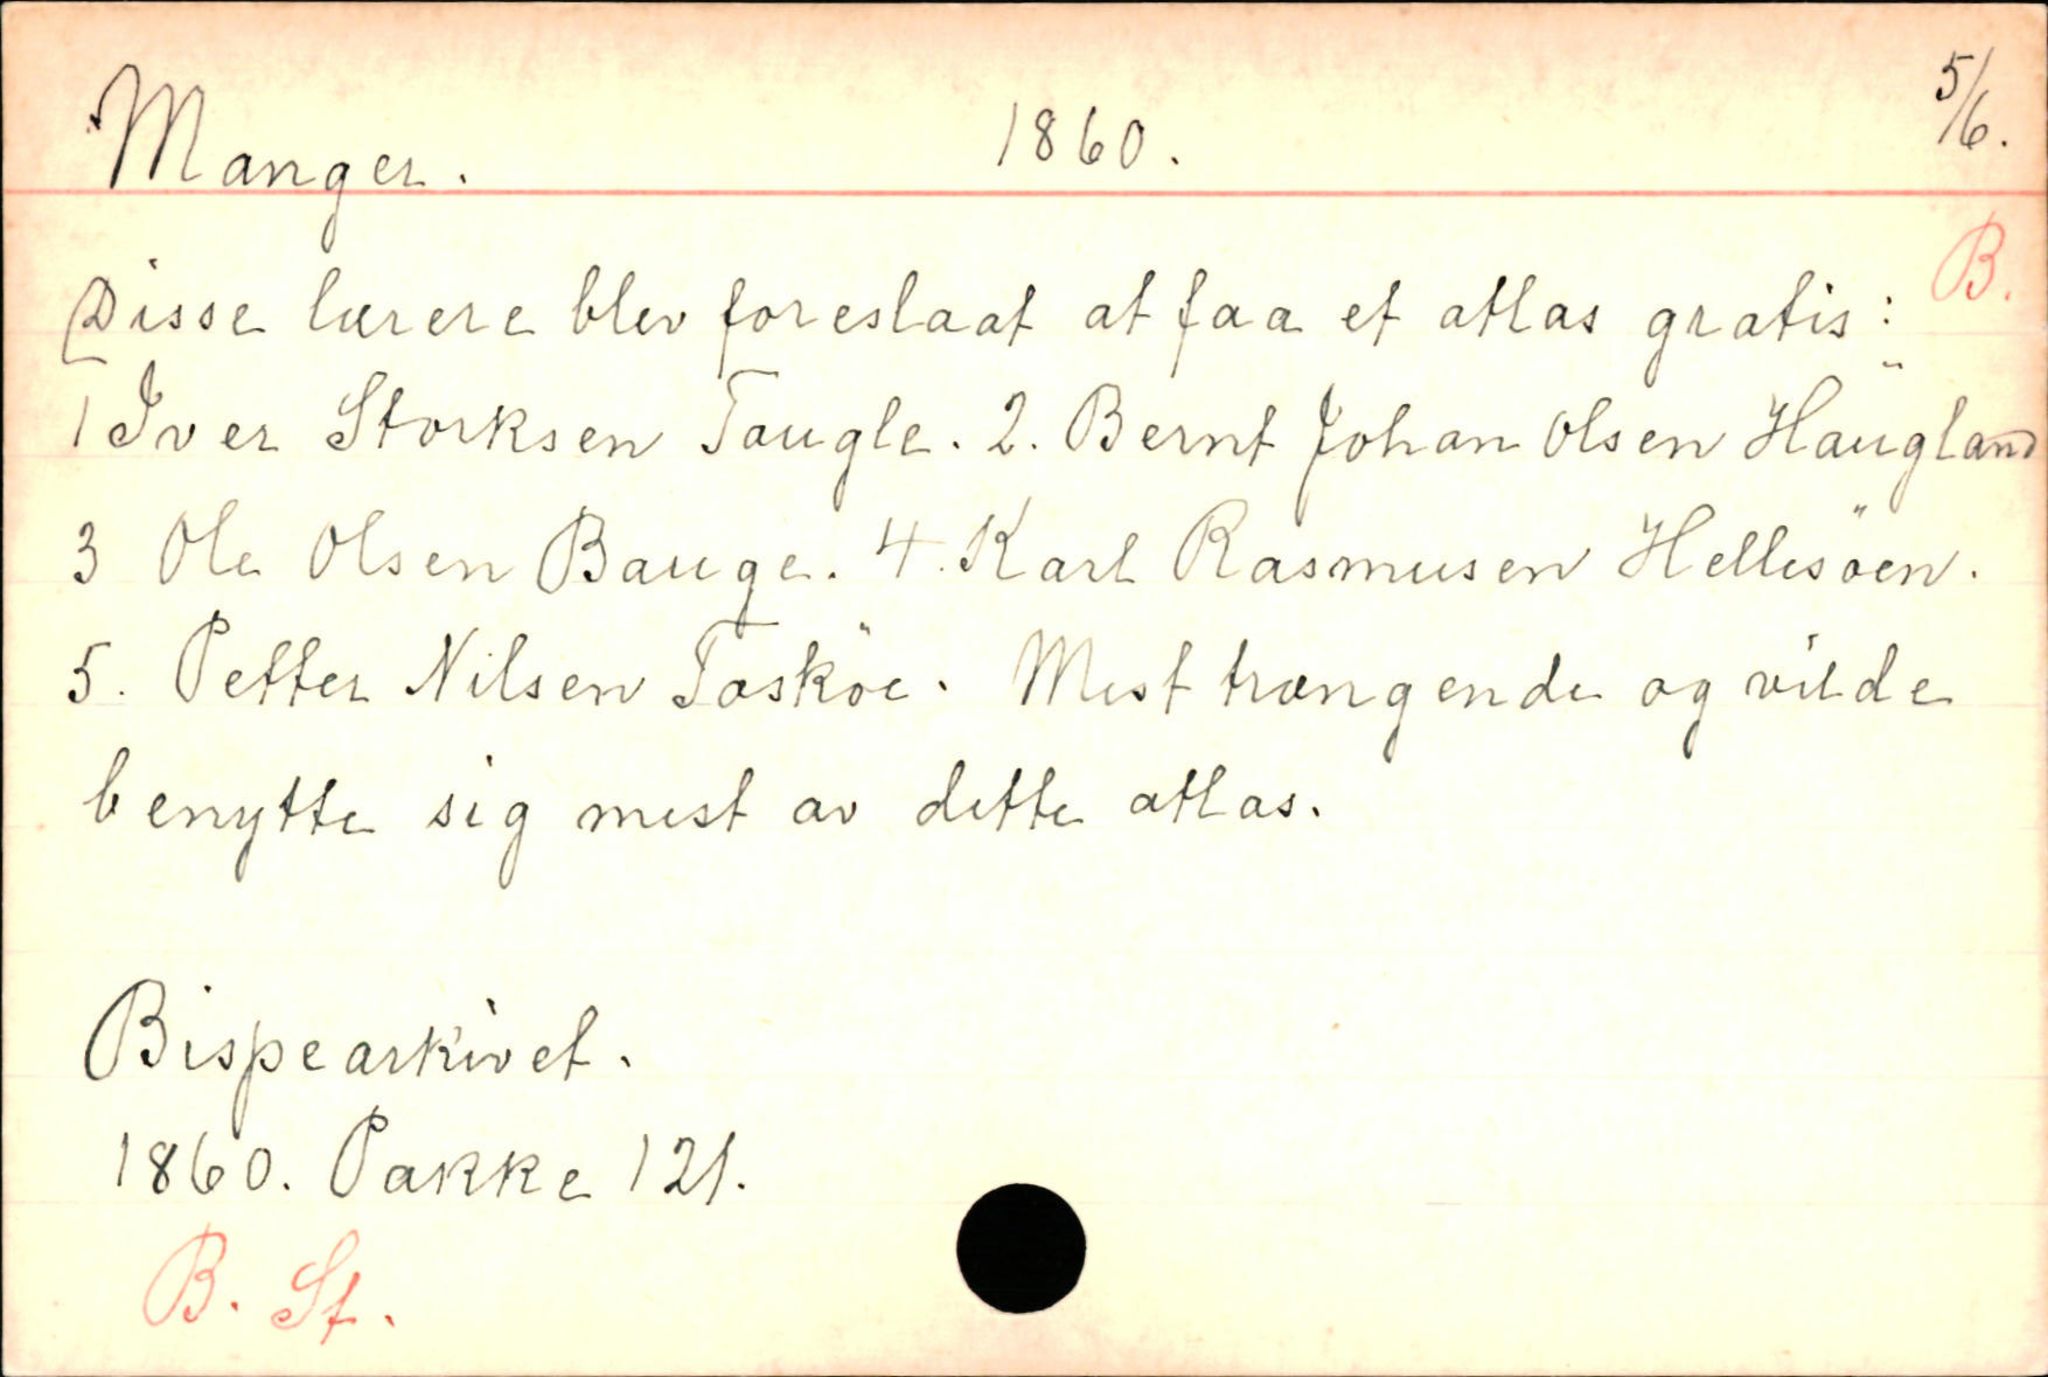 Manger. 1860. 5/6.
B.
Disse lærere blev foreslaat at faa et atlas gratis:
1 Iver Storksen Taugle. 2. Bernt Johan Olsen Haugland
3 Ole Olsen Bauge. 4. Karl Rasmusen Hellesöen.
5. Petter Nilsen Tosköe. Mest trængende og vilde
benytte sig mest av dette atlas.
Bispearkivet.
1860. Pakke 121.
B. St.